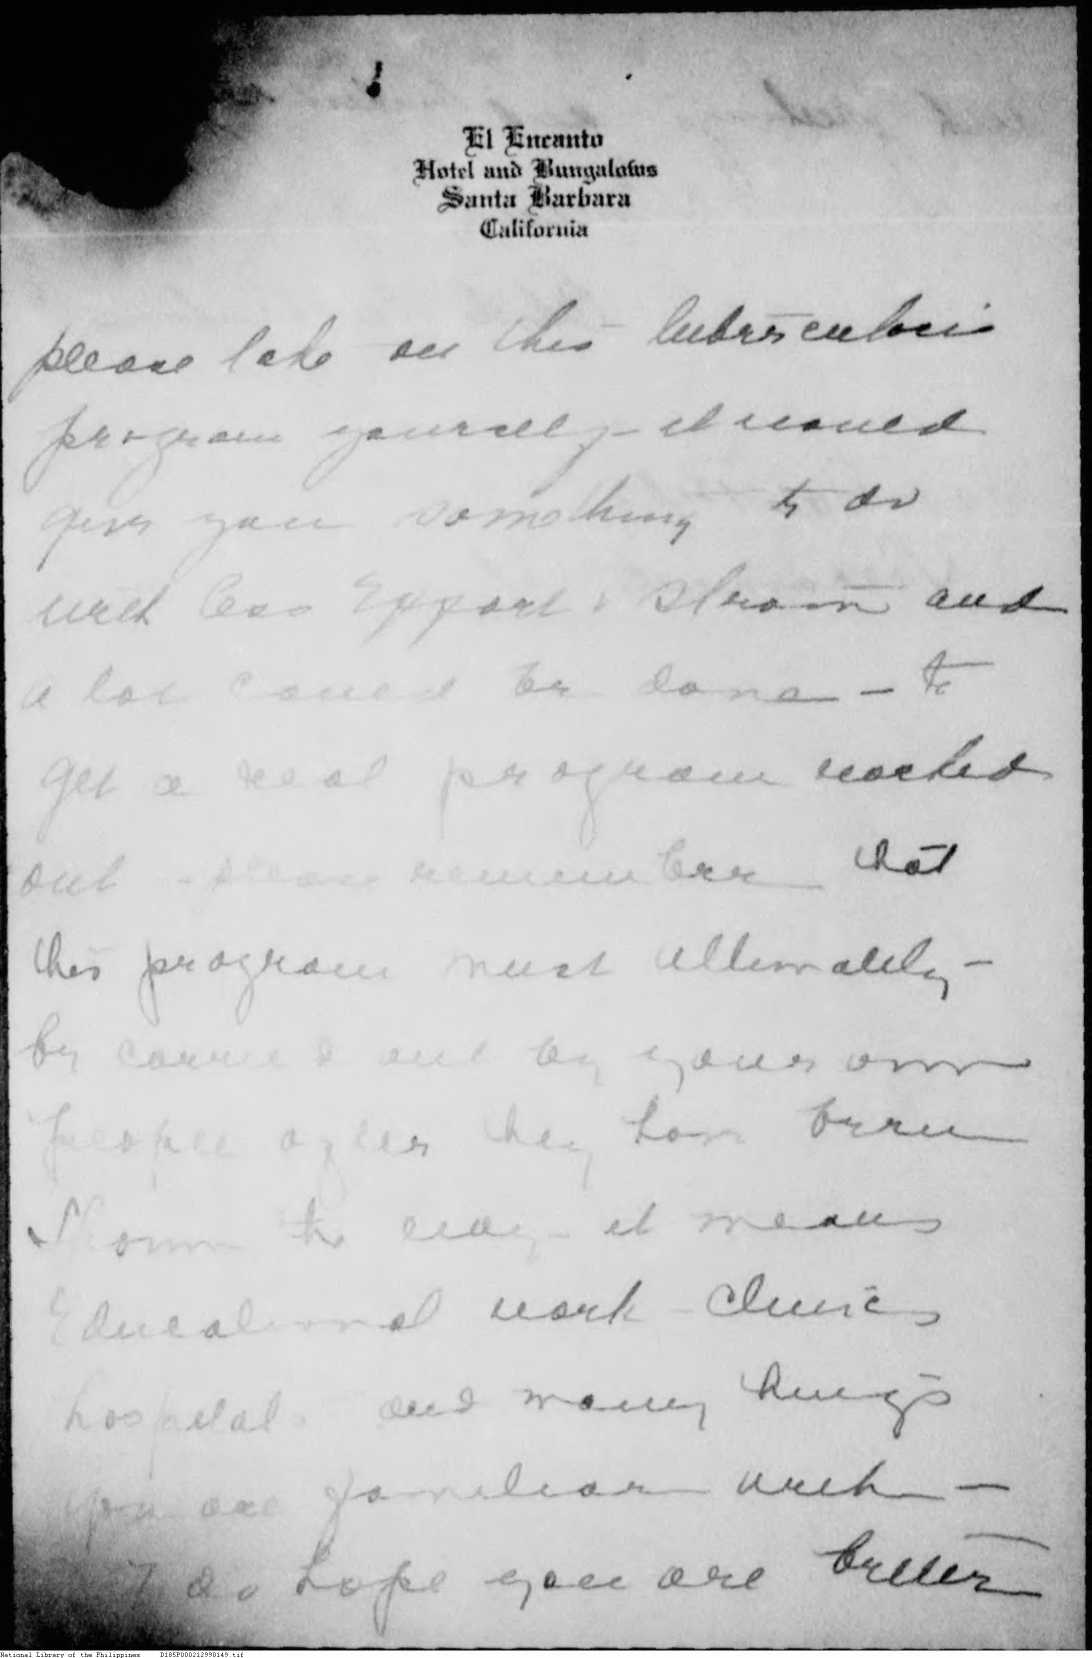 El Encanto
Hotel and Bungalows
Santa Barbara
California
please take on this tuberculosis
program yourself - it would
give you something to do
with less effort & strain and
a lot could be done - to
get a real program worked
out - please remember that
this program must ultimately -
be carried out by your own
people after they have been
shown the way - it means
Educational work - Clinics
hospitals and many things
you are familiar with -
I do hope you are better
National Library of the Philippines D185P000212998149.tif